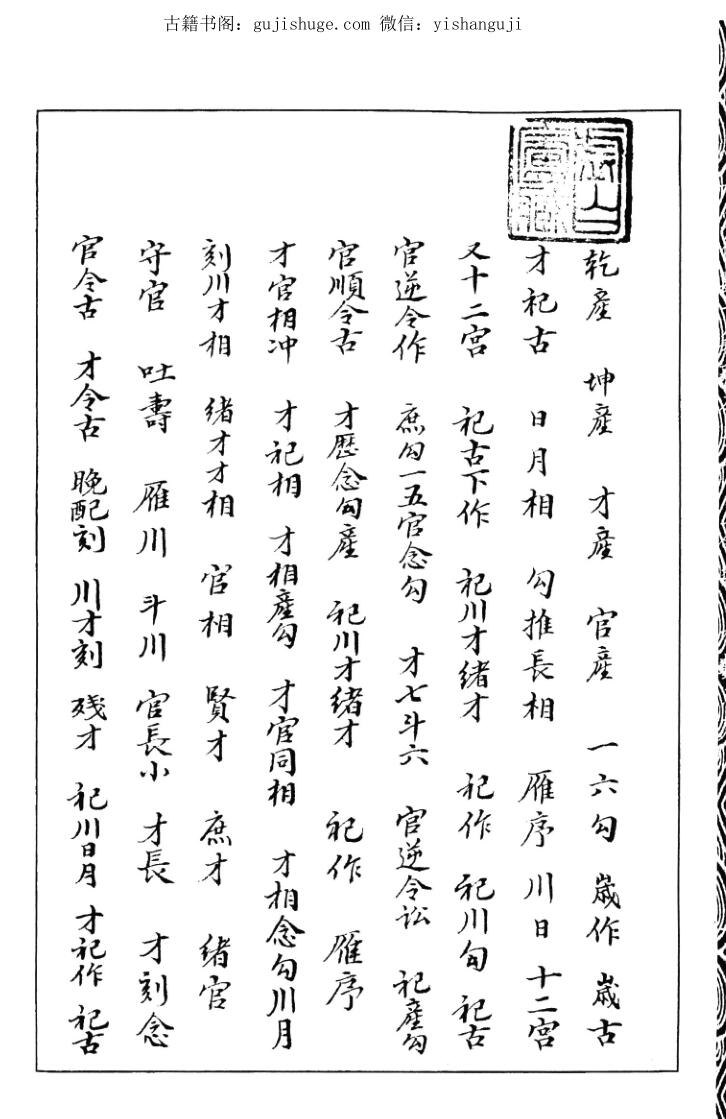 古籍书阁：gujishuge.com 微信：yishanguji
乾産 坤産 才産 官産 一六勾 歳作 歳古
才祀古 日月相 勾推長相 雁序 川日 十二宫
又十二宫 祀古下作 祀川才绪才 祀作 祀川勾 祀古
官逆令作 庶勾一五官念勾 才七斗六 官逆令訟 祀産勾
官順令古 才歴念勾産 祀川才绪才 祀作 雁序
才官相冲 才祀相 才相産勾 才官同相 才相念勾川月
刻川才相 绪才才相 官相 賢才 庶才 绪官
守官 吐壽 雁川 斗川 官長小 才長 才刻念
官令古 才令古 晚配刻 川才刻 残才 祀川日月 才祀作 祀古